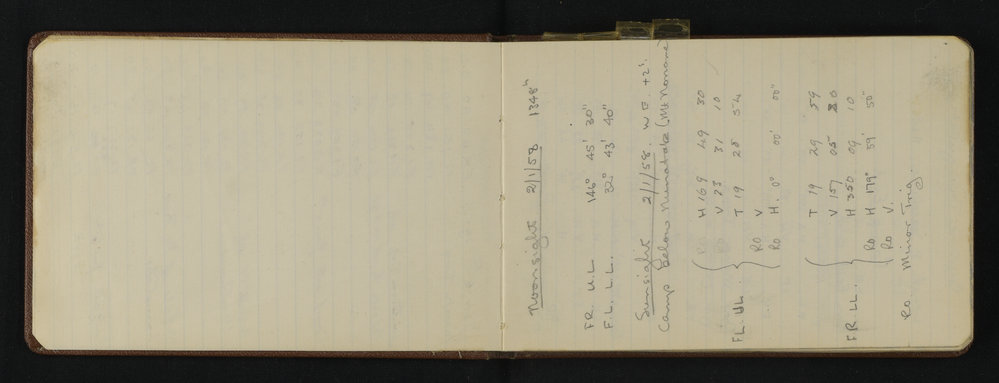 Noonsight 2/1/58 1348 h
FR U.L 146° 45' 30"
F.L. L.L. 32° 43' 40"
Sunsight 2/1/58. W.E. +2 s.
Camp Below Nunatak (Mt Noname)
RO H 169 49 30
RO V 23 31 10
FL. UL. T 19 28 54
RO V
RO H. 0° 00' 00"
T 19 29 59
V 157 05 30
FR LL. H 350 09 10
RO H 179° 59' 50"
RO V.
RO. Minor Trig.